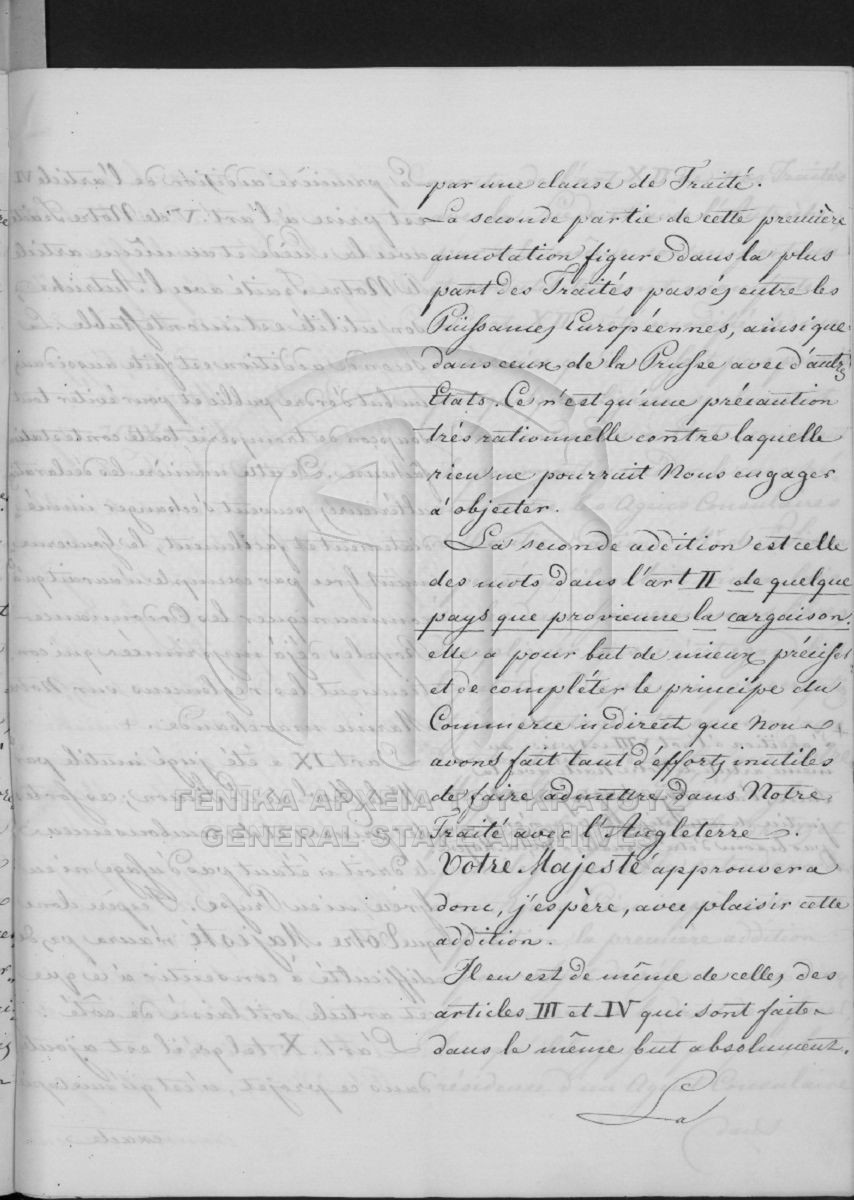 par une clause de Traité.
La seconde partie de cette première
annotation figure dans la plus
part des Traités passés entre les
Puissances Européennes, ainsi que
dans ceux de la Prusse avec d'autres
Etats. Ce n'est qu'une précaution
trés rationnelle contre laquelle
rien ne pourrait Nous engager
à objecter.
La seconde addition est celle
des mots dans l'art II de quelque
pays que provienne la cargaison.
elle a pour but de mieux préciser
et de compléter le principe du
Commerce indirect que nous
avons fait tant d'efforts inutiles
de faire admettre dans Notre
ΓΕΝΙΚΑ ΑΡΧΕΙΑ ΤΟΥ ΚΡΑΤΟΥΣ
Traité avec l'Angleterre.
GENERAL STATE ARCHIVES
Votre Majesté approuvera
donc, j'espère, avec plaisir cette
addition.
Il en est de même de celles des
articles III et IV qui sont faites
dans le même but absolument.
La